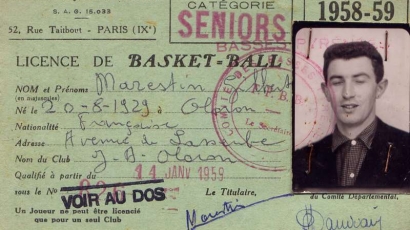 S. A. G. 15.033
CATÉGORIE
1958-59
52, Rue Taitbout - PARIS (IXe)
SENIORS
BASSES PYRÉNÉES
LICENCE DE BASKET-BALL
NOM et Prénoms Marestin
(en majuscules)
Né le 20-8-1929 à Oloron
Nationalité Française
Adresse Avenue de Lasseube
Nom du Club J-A-Oloron
Qualifié à partir du 14 JANV 1959
sous le No
VOIR AU DOS
Le Titulaire,
du Comité Départemental,
Un Joueur ne peut être licencié
que pour un seul Club
Marestin